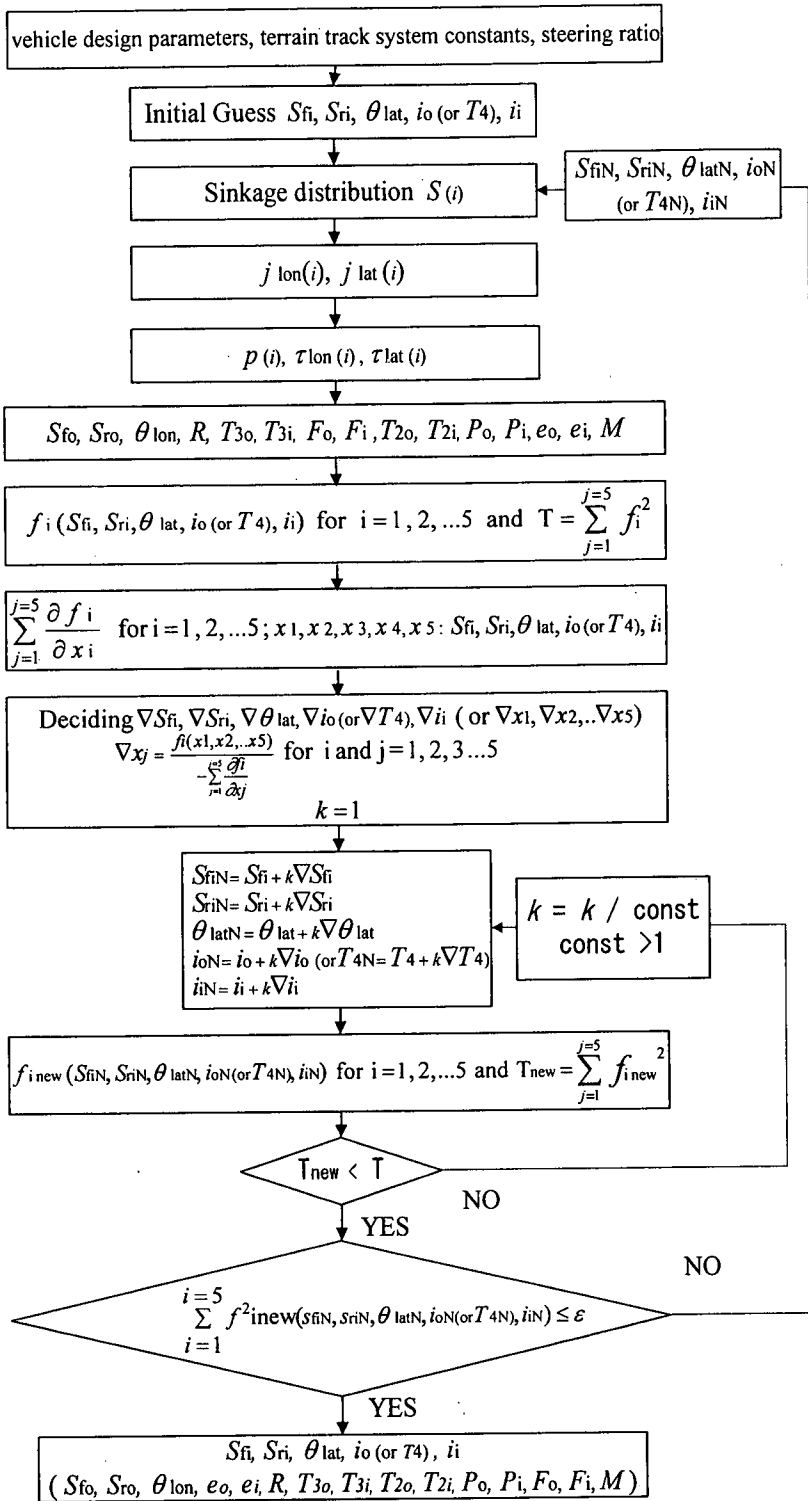 vehicle design parameters, terrain track system constants, steering ratio
Initial Guess Sfi, Sri, θlat, io (or T4), ii
Sinkage distribution S(i)
SfiN, SriN, θlatN, ioN
(or T4N), iiN
j lon(i), j lat (i)
p (i), τlon (i), τlat (i)
Sfo, Sro, θlon, R, T3o, T3i, Fo, Fi ,T2o, T2i, Po, Pi, eo, ei, M
f i (Sfi, Sri, θ lat, io (or T4), ii) for i = 1, 2, ...5 and T = ∑_{j=1}^{j=5} f_i^2
∑_{j=1}^{j=5} ∂f i / ∂x i for i = 1, 2, ...5 ; x1, x2, x3, x4, x5 : Sfi, Sri, θ lat, io (or T4), ii
Deciding ∇Sfi, ∇Sri, ∇θ lat, ∇io (or ∇T4), ∇ii ( or ∇x1, ∇x2,..∇x5)
∇xj = fi(x1,x2,..x5) / -∑_{j=1}^{j=5} ∂fi/∂xj for i and j = 1, 2, 3 ...5
k = 1
SfiN = Sfi + k∇Sfi
SriN = Sri + k∇Sri
θ latN = θ lat + k∇θ lat
ioN = io + k∇io (or T4N = T4 + k∇T4)
iiN = ii + k∇ii
k = k / const
const >1
f i new (SfiN, SriN, θ latN, ioN(or T4N), iiN) for i = 1, 2, ...5 and Tnew = ∑_{j=1}^{j=5} f_{i new}^2
Tnew < T
NO
YES
NO
∑_{i=1}^{i=5} f²inew(sfiN, sriN, θ latN, ioN(or T4N), iiN) ≤ ε
YES
Sfi, Sri, θ lat, io (or T4) , ii
( Sfo, Sro, θlon, eo, ei, R, T3o, T3i, T2o, T2i, Po, Pi, Fo, Fi, M )